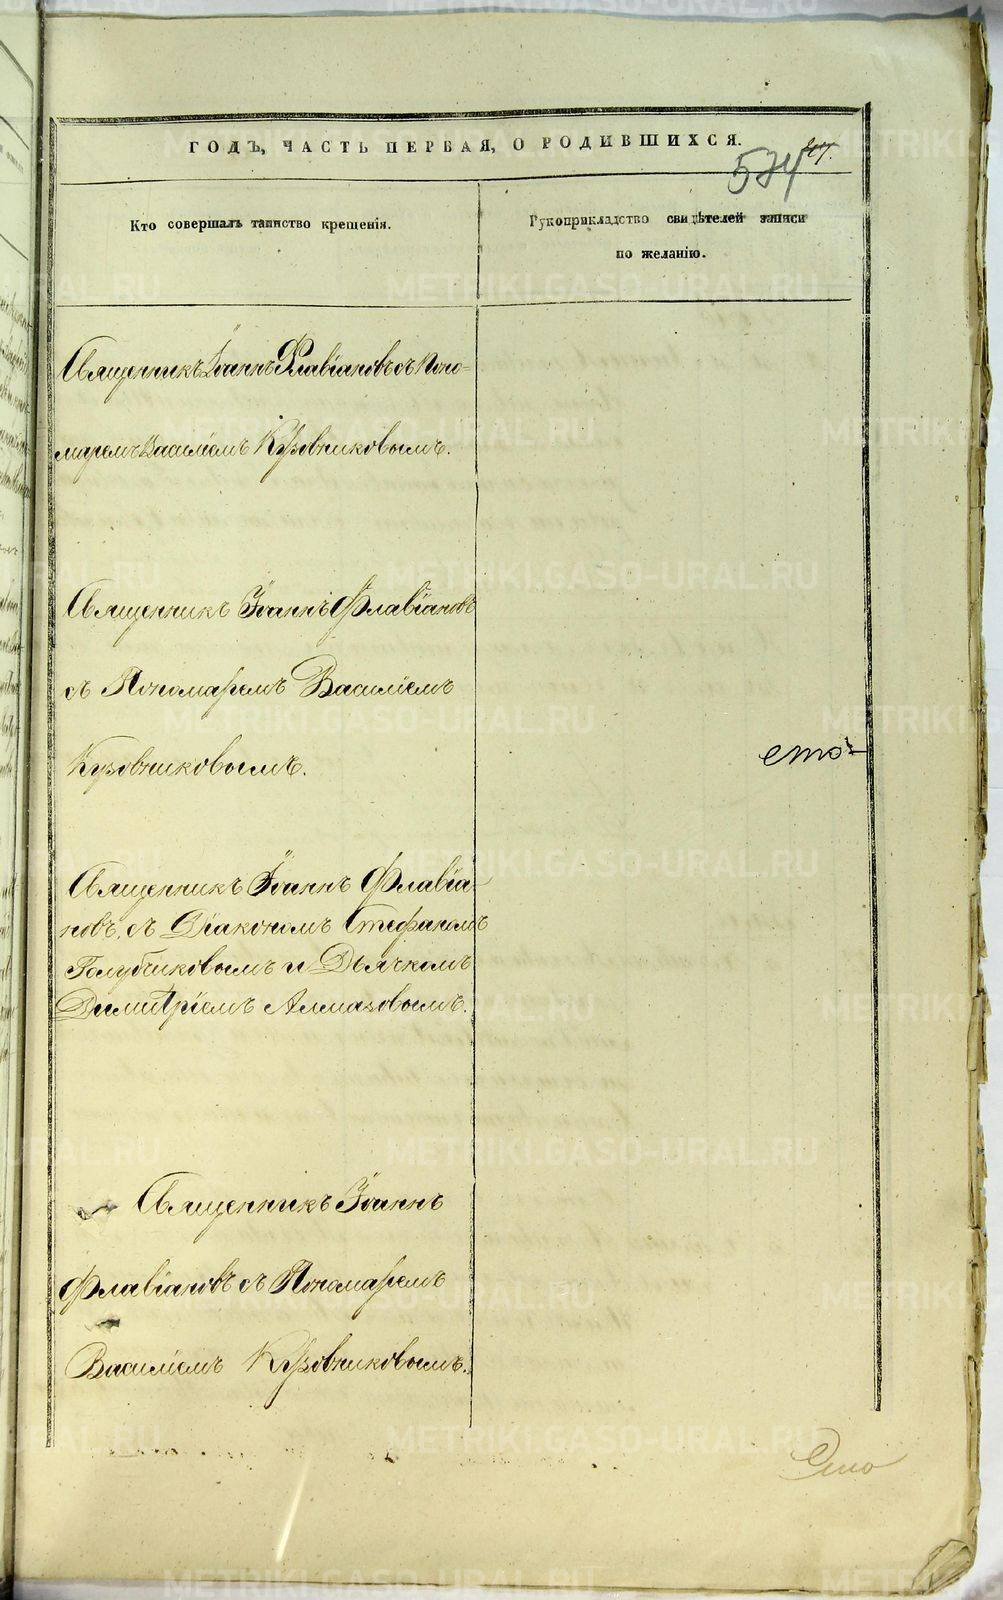 ГОДЪ, ЧАСТЬ ПЕРВАЯ, О РОДИВШИХСЯ.
574
Кто совершалъ таинство крещенія.
Рукоприкладство свидѣтелей записи
по желанію.
Священникъ Іоаннъ Флавіановъ съ Поно-
маремъ Василіемъ Кузовниковымъ.
Священникъ Іоаннъ Флавіановъ
съ Пономаремъ Василіемъ
Кузовниковымъ.
сто
Священникъ Іоаннъ Флавіа-
новъ, съ Діакономъ Стефаномъ
Голубчиковымъ и Дьячкомъ
Димитріемъ Алмазовымъ.
Священникъ Іоаннъ
Флавіановъ съ Пономаремъ
Василіемъ Кузовниковымъ.
METRIKI.GASO-URAL.RU